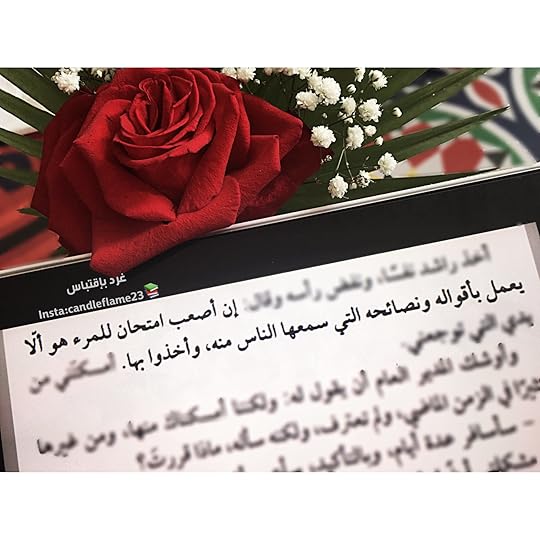 غرد بإقتباس
Insta:candleflame23
أخذ راشد نفسًا، ونفض رأسه وقال: إن أصعب امتحان للمرء هو ألّا
يعمل بأقواله ونصائحه التي سمعها الناس منه، وأخذوا بها. أمسكتَني من
يدي التي توجعني.
وأوشك المدير العام أن يقول له: ولكننا أمسكناك منها، ومن غيرها
كثيرًا في الزمن الماضي، ولم تعترف، ولكنه سأله، ماذا قررت؟
- سأسافر عدة أيام، وبالتأكيد